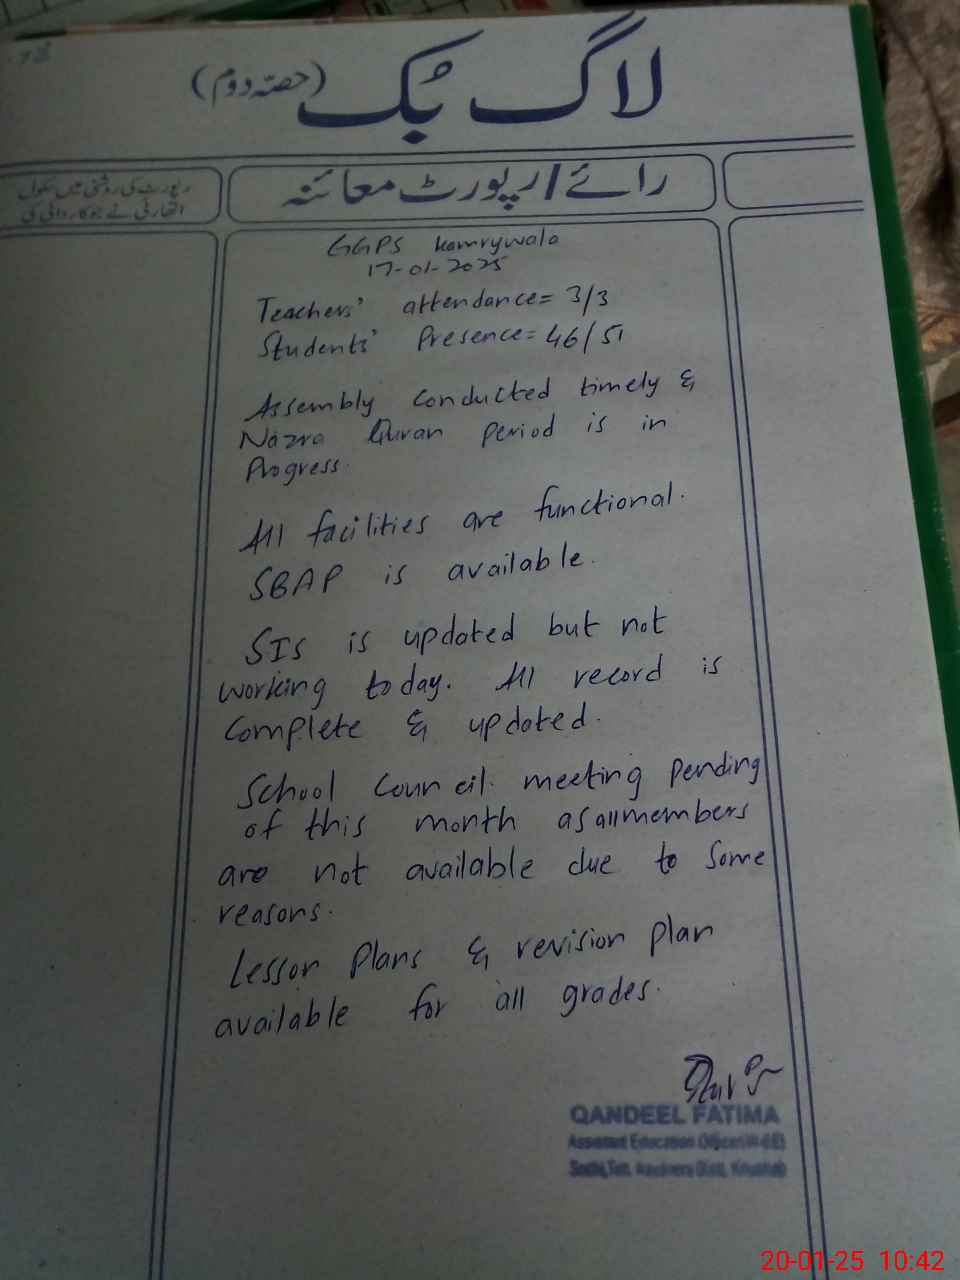 لاگ بُک (حصّہ دوم)
رائے/رپورٹ معائنہ
رپورٹ کی روشنی میں سکول
اتھارٹی نے جو کاروائی کی
GGPS Kamrywala
17-01-2025
Teachers' attendance= 3/3
Students' Presence= 46/51
Assembly conducted timely &
Nazra Quran period is in
Progress.
All facilities are functional.
SBAP is available.
SIS is updated but not
working today. All record is
Complete & updated.
School Council. meeting pending
of this month as all members
are not available due to Some
reasons.
Lesson Plans & revision plan
available for all grades.
QANDEEL FATIMA
Assistant Education Officer
20-01-25 10:42